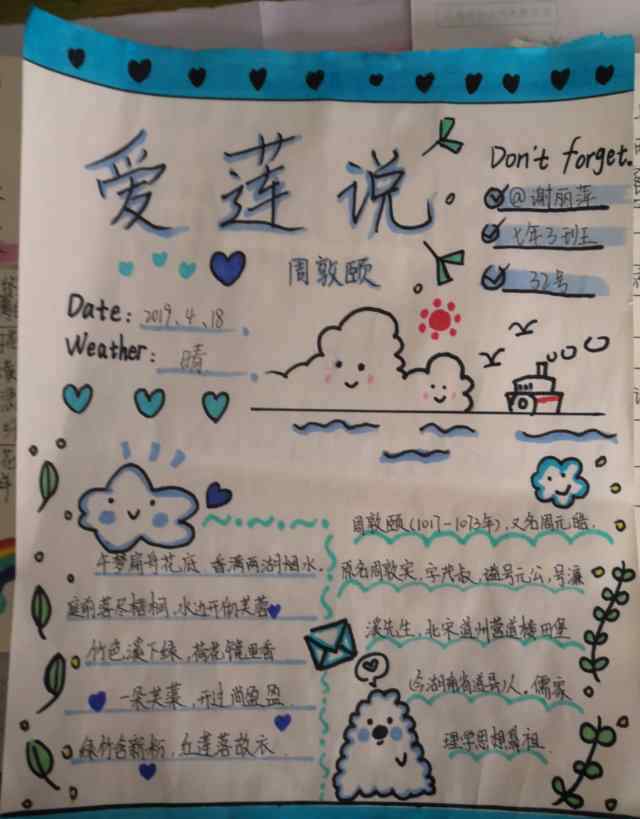 爱莲说
周敦颐
Don't forget.
@谢丽萍
七年3班
32号
Date: 2019.4.18
Weather: 晴
午梦扁舟花底,香满西湖烟水.
庭前落尽梧桐,水边开彻芙蓉
竹色溪下绿,荷花镜里香
一朵芙蕖,开过尚盈盈
绿竹含新粉,红莲落故衣.
周敦颐(1017-1073年),又名周元皓.
原名周敦实,字茂叔,谥号元公,号濂
溪先生,北宋道州营道楼田堡
(今湖南省道县)人,儒家
理学思想鼻祖.